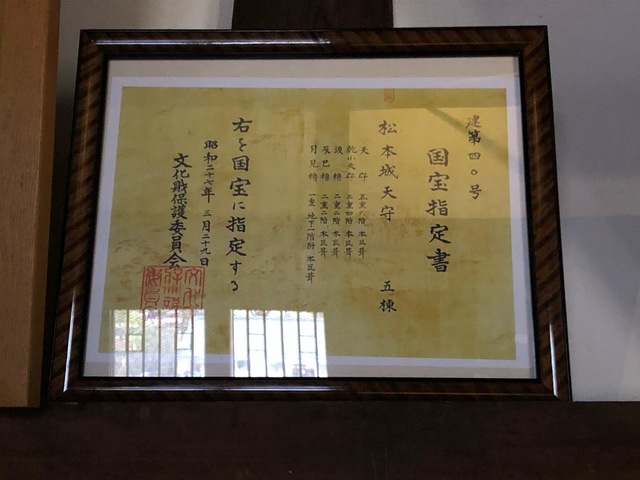 建第四〇号
国宝指定書
松本城天守 五棟
天守 五重六階 本瓦葺
乾小天守 三重四階 本瓦葺
渡櫓 二重二階 本瓦葺
辰巳櫓 二重二階 本瓦葺
月見櫓 一重 地下一階附 本瓦葺
右を国宝に指定する
昭和二十七年三月二十九日
文化財保護委員会